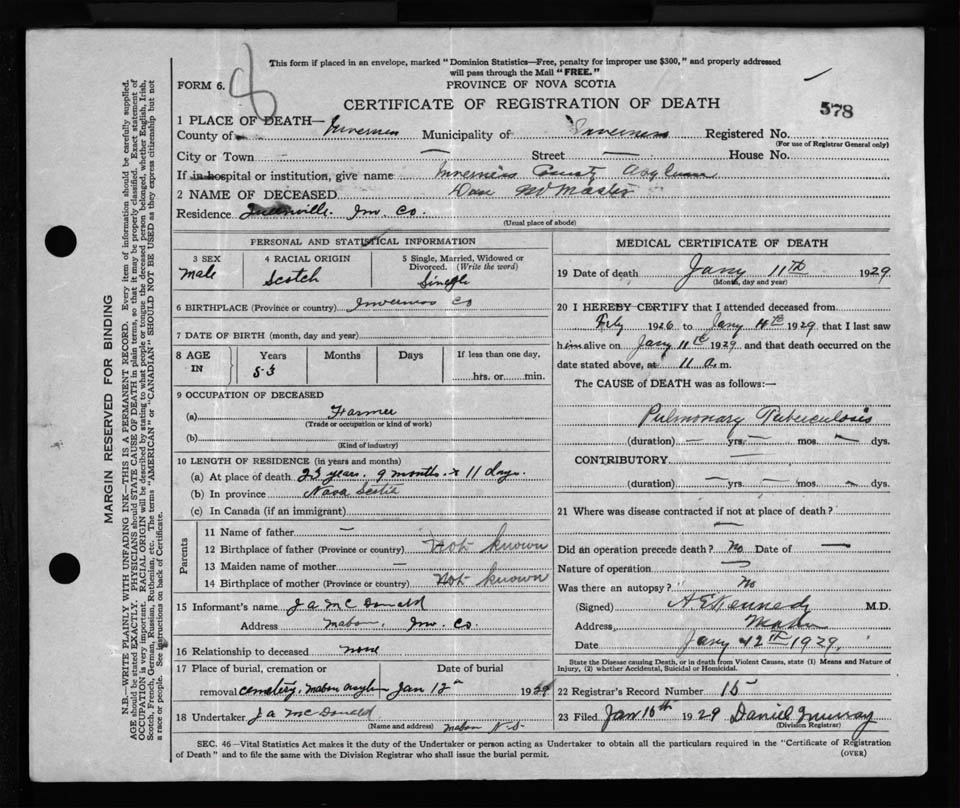 8
This form if placed in an envelope, marked "Dominion Statistics—Free, penalty for improper use $300," and properly addressed
will pass through the Mail "FREE."
FORM 6.
PROVINCE OF NOVA SCOTIA
CERTIFICATE OF REGISTRATION OF DEATH
578
1 PLACE OF DEATH—
County of Inverness Municipality of Inverness Registered No.
(For use of Registrar General only)
City or Town — Street — House No.
If in hospital or institution, give name Inverness County Asylum
2 NAME OF DECEASED Dan McMaster
Residence Inv. Co.
(Usual place of abode)
PERSONAL AND STATISTICAL INFORMATION
3 SEX 4 RACIAL ORIGIN 5 Single, Married, Widowed or
Divorced. (Write the word)
male Scotch Single
6 BIRTHPLACE (Province or country) Inverness Co
7 DATE OF BIRTH (month, day and year)
8 AGE IN Years Months Days If less than one day,
53 hrs. or min.
9 OCCUPATION OF DECEASED
(a) Farmer
(Trade or occupation or kind of work)
(b)
(Kind of industry)
10 LENGTH OF RESIDENCE (in years and months)
(a) At place of death 23 years, 9 months & 11 days.
(b) In province Nova Scotia
(c) In Canada (if an immigrant)
Parents
11 Name of father —
12 Birthplace of father (Province or country) Not known
13 Maiden name of mother —
14 Birthplace of mother (Province or country) Not known
15 Informant's name J A McDonald
Address Mabou, Inv. Co.
16 Relationship to deceased none
17 Place of burial, cremation or Date of burial
removal cemetery, Mabou Jan 12th 1929
18 Undertaker J A McDonald
(Name and address) Mabou N.S.
MEDICAL CERTIFICATE OF DEATH
19 Date of death Jany 11th 1929
(Month, day and year)
20 I HEREBY CERTIFY that I attended deceased from
1926 to Jany 1929 that I last saw
him alive on Jany 11th 1929 and that death occurred on
the date stated above, at 11 a.m.
The CAUSE of DEATH was as follows:—
Pulmonary Tuberculosis
(duration) — yrs. — mos. — dys.
CONTRIBUTORY —
(duration) — yrs. — mos. — dys.
21 Where was disease contracted if not at place of death?
—
Did an operation precede death? No Date of —
Nature of operation —
Was there an autopsy? No
(Signed) A E Kennedy M.D.
Address Mabou
Date Jany 12th 1929.
State the Disease causing Death, or in death from Violent Causes, state (1) Means and Nature of
Injury, (2) whether Accidental, Suicidal or Homicidal.
22 Registrar's Record Number 15
23 Filed Jan 16th 1929 Daniel Murray
(Division Registrar)
SEC. 46—Vital Statistics Act makes it the duty of the Undertaker or person acting as Undertaker to obtain all the particulars required in the "Certificate of Registration
of Death" and to file the same with the Division Registrar who shall issue the burial permit. (OVER)
MARGIN RESERVED FOR BINDING
N.B.—WRITE PLAINLY WITH UNFADING INK—THIS IS A PERMANENT RECORD. Every item of information should be carefully supplied.
AGE should be stated EXACTLY. PHYSICIANS should STATE CAUSE OF DEATH in plain terms, so that it may be properly classified. Exact statement of
OCCUPATION is very important. RACIAL ORIGIN will be described by stating to what people or tongue the deceased person belonged, whether English, Irish,
Scotch, French, German, Russian, Ruthenian, etc. The terms "AMERICAN" or "CANADIAN" SHOULD NOT BE USED as they express citizenship but not
a race or people. See instructions on back of Certificate.